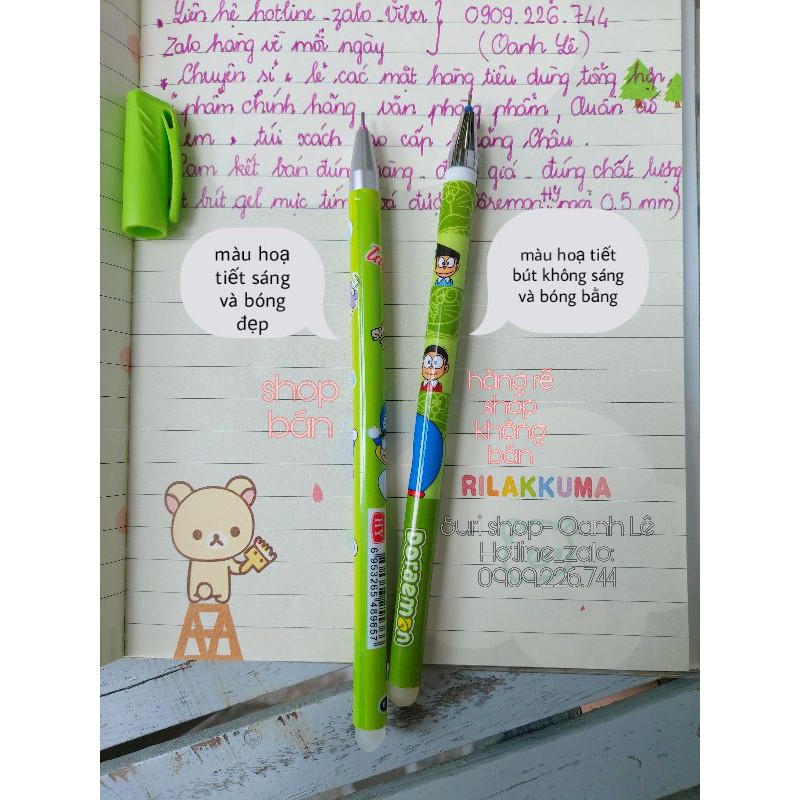 Liên hệ hotline _ zalo _ Viber } 0909.226.744
Zalo hàng về mỗi ngày (Oanh Lê)
* Chuyên sỉ & lẻ các mặt hàng tiêu dùng tổng hợp
phẩm chính hãng, văn phòng phẩm, Quần áo
em, túi xách cao cấp Quảng Châu.
Cam kết bán đúng hàng _ giá _ đúng chất lượng
bút gel mực tím xoá được (Doremon HY ngòi 0.5 mm)
màu hoạ
tiết sáng
và bóng
đẹp
màu hoạ tiết
bút không sáng
và bóng bằng
shop
bán
hàng rẻ
shop
không
bán
RILAKKUMA
Suri shop- Oanh Lê
Hotline_zalo:
0909.226.744
HY
6 953265 489657
Doraemon